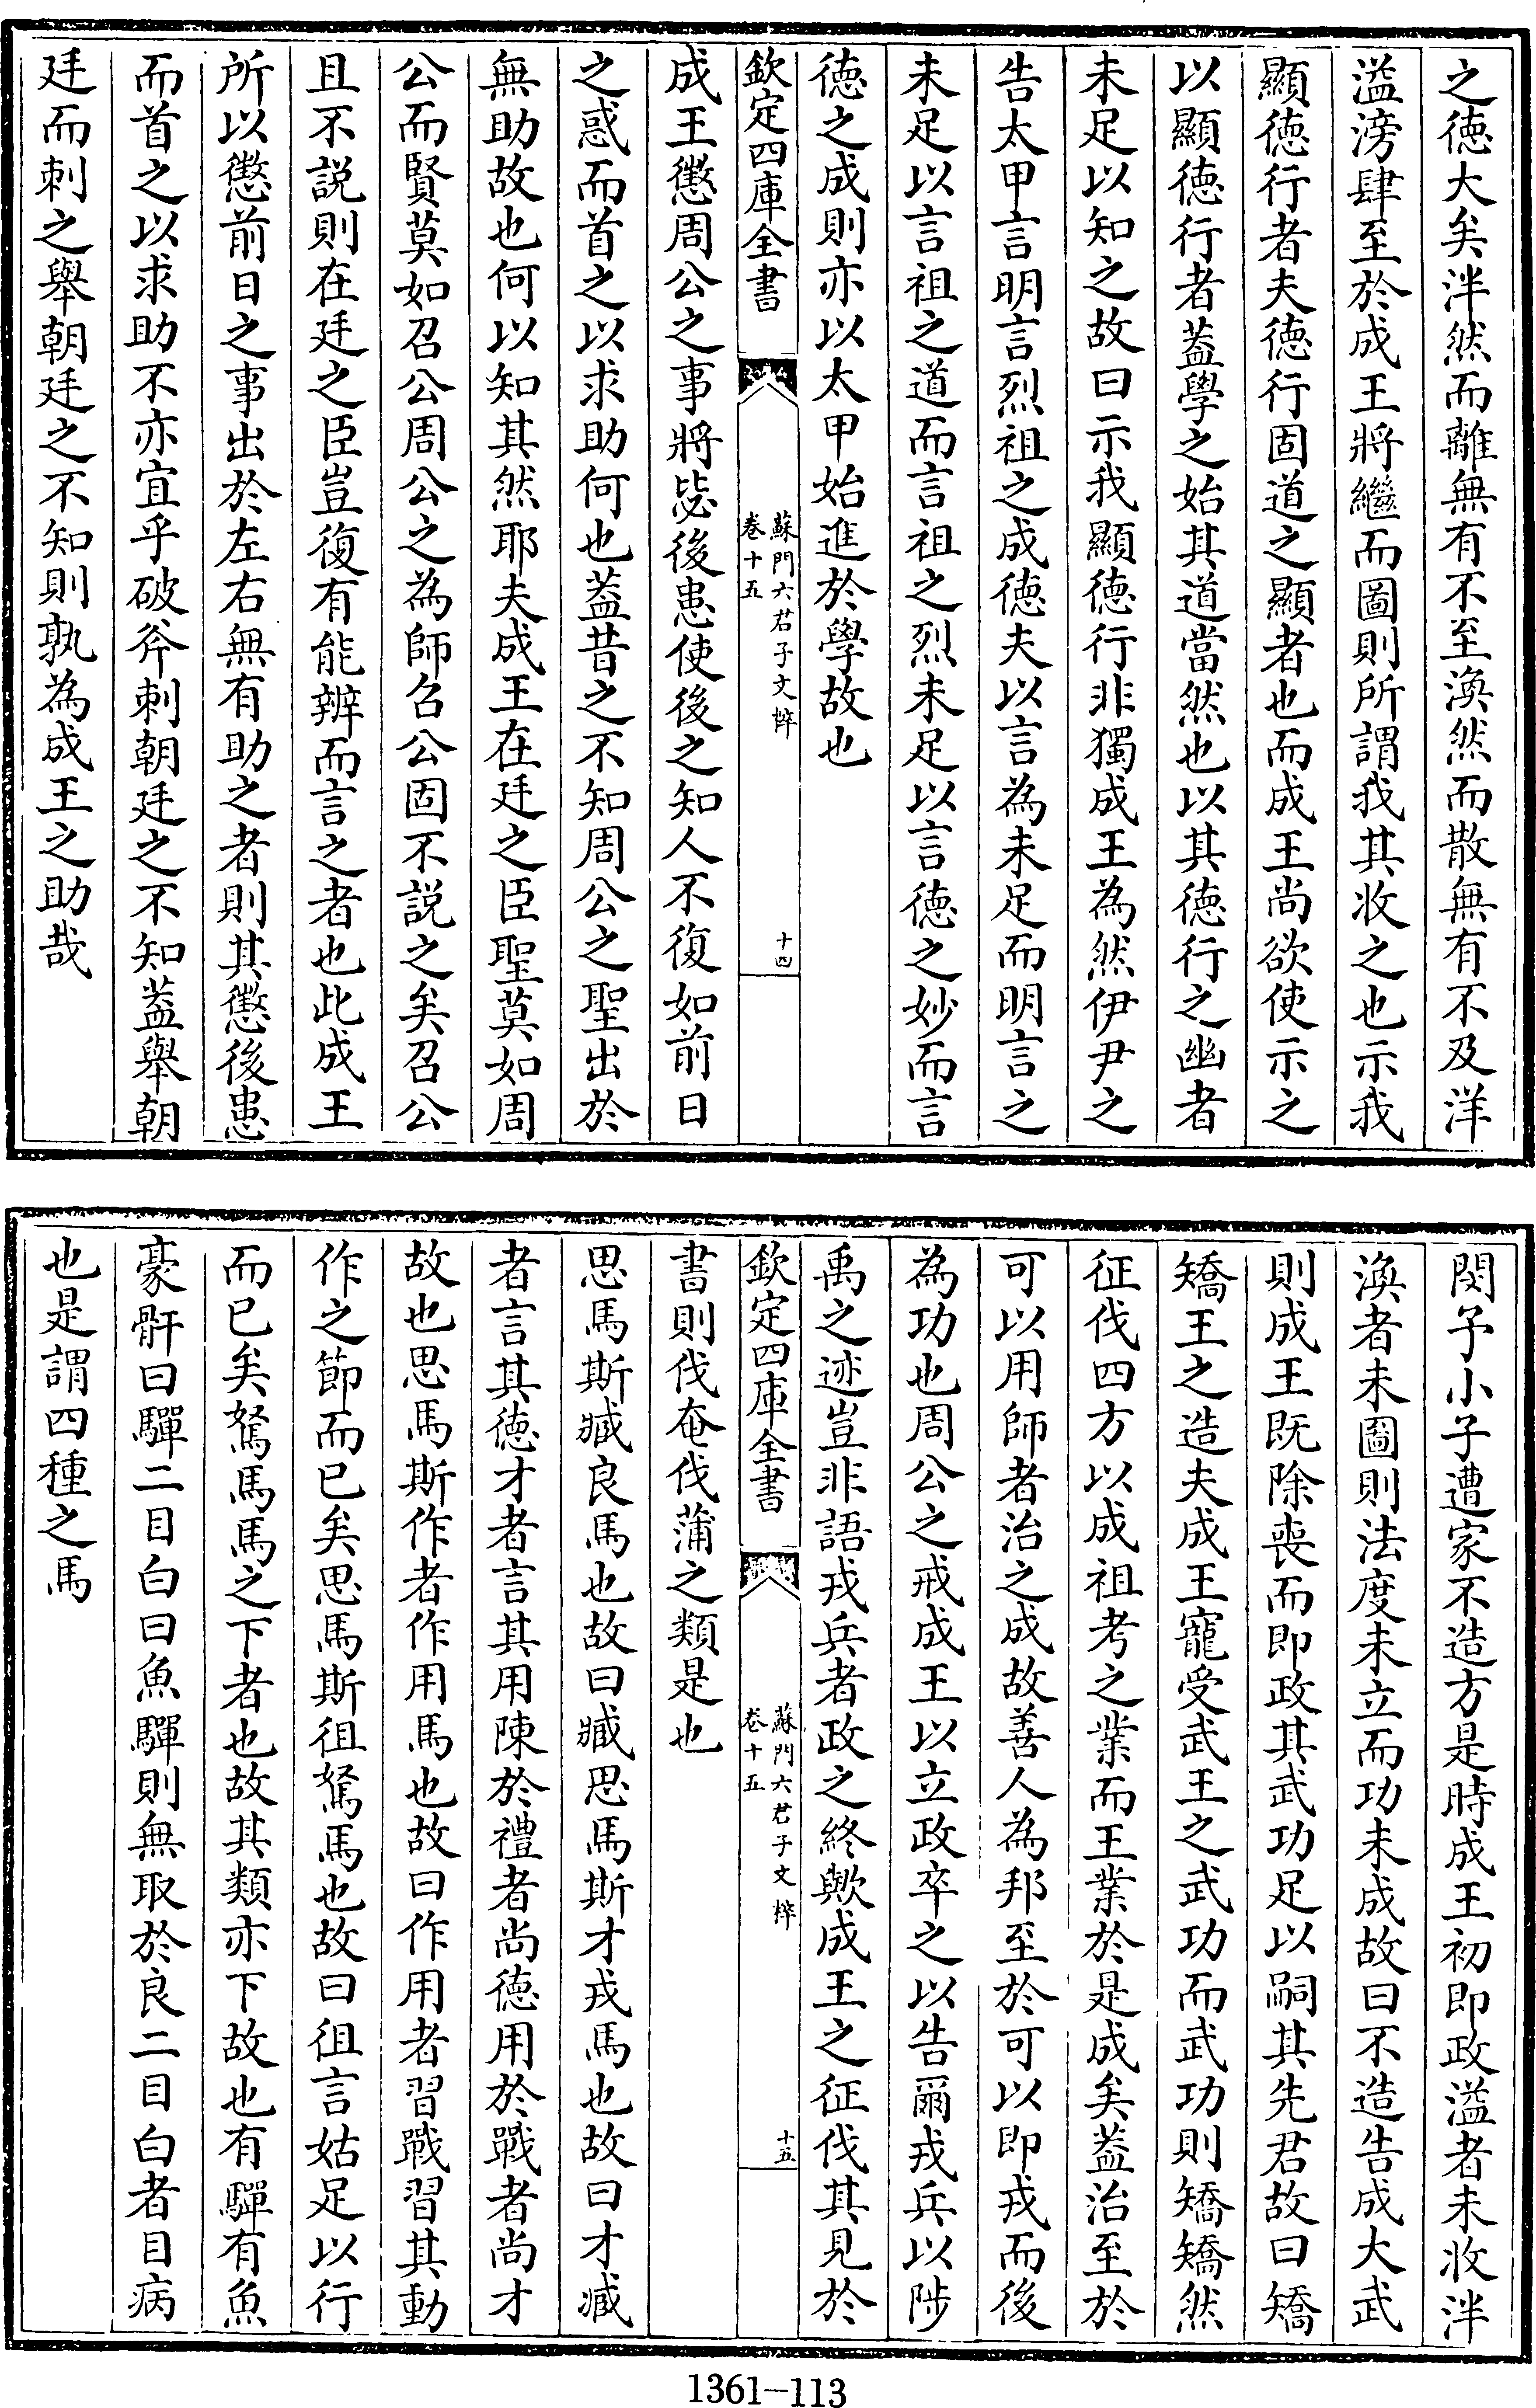 之徳大矣泮然而離無有不至渙然而散無有不及洋
溢滂肆至於成王將繼而圖則所謂我其收之也示我
顯徳行者夫徳行固道之顯者也而成王尚欲使示之
以顯徳行者蓋學之始其道當然也以其徳行之幽者
未足以知之故曰示我顯徳行非獨成王為然伊尹之
告太甲言明言烈祖之成徳夫以言為未足而明言之
未足以言祖之道而言祖之烈未足以言徳之妙而言
徳之成則亦以太甲始進於學故也
欽定四庫全書
蘇門六君子文粹
卷十五
十四
成王懲周公之事將毖後患使後之知人不復如前日
之惑而首之以求助何也蓋昔之不知周公之聖出於
無助故也何以知其然耶夫成王在廷之臣聖莫如周
公而賢莫如召公周公之為師召公固不説之矣召公
且不説則在廷之臣豈復有能辨而言之者也此成王
所以懲前日之事出於左右無有助之者則其懲後患
而首之以求助不亦宜乎破斧刺朝廷之不知蓋舉朝
廷而刺之舉朝廷之不知則孰為成王之助哉
閔予小子遭家不造方是時成王初即政溢者未收泮
渙者未圖則法度未立而功未成故曰不造告成大武
則成王既除喪而即政其武功足以嗣其先君故曰矯
矯王之造夫成王寵受武王之武功而武功則矯矯然
征伐四方以成祖考之業而王業於是成矣蓋治至於
可以用師者治之成故善人為邦至於可以即戎而後
為功也周公之戒成王以立政卒之以告爾戎兵以陟
禹之迹豈非語戎兵者政之終歟成王之征伐其見於
欽定四庫全書
蘇門六君子文粹
卷十五
十五
書則伐奄伐蒲之類是也
思馬斯臧良馬也故曰臧思馬斯才戎馬也故曰才臧
者言其徳才者言其用陳於禮者尚徳用於戰者尚才
故也思馬斯作者作用馬也故曰作用者習戰習其動
作之節而已矣思馬斯徂駑馬也故曰徂言姑足以行
而已矣駑馬馬之下者也故其類亦下故也有驔有魚
豪骭曰驔二目白曰魚驔則無取於良二目白者目病
也是謂四種之馬
1361-113